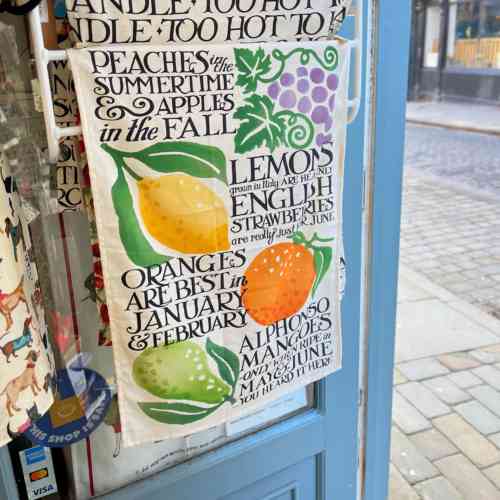 ANDLE • TOO HOT TO H
NDLE • TOO HOT TO
PEACHES in the
SUMMERTIME
& APPLES
in the FALL
LEMONS
grown in Italy ARE HEAVENLY
ENGLISH
STRAWBERRIES
are really just for JUNE
ORANGES
ARE BEST in
JANUARY
& FEBRUARY
ALPHONSO
MANGOES
ONLY WHEN RIPE in
MAY & JUNE
YOU HEARD IT HERE
THIS SHOP IS
VISA